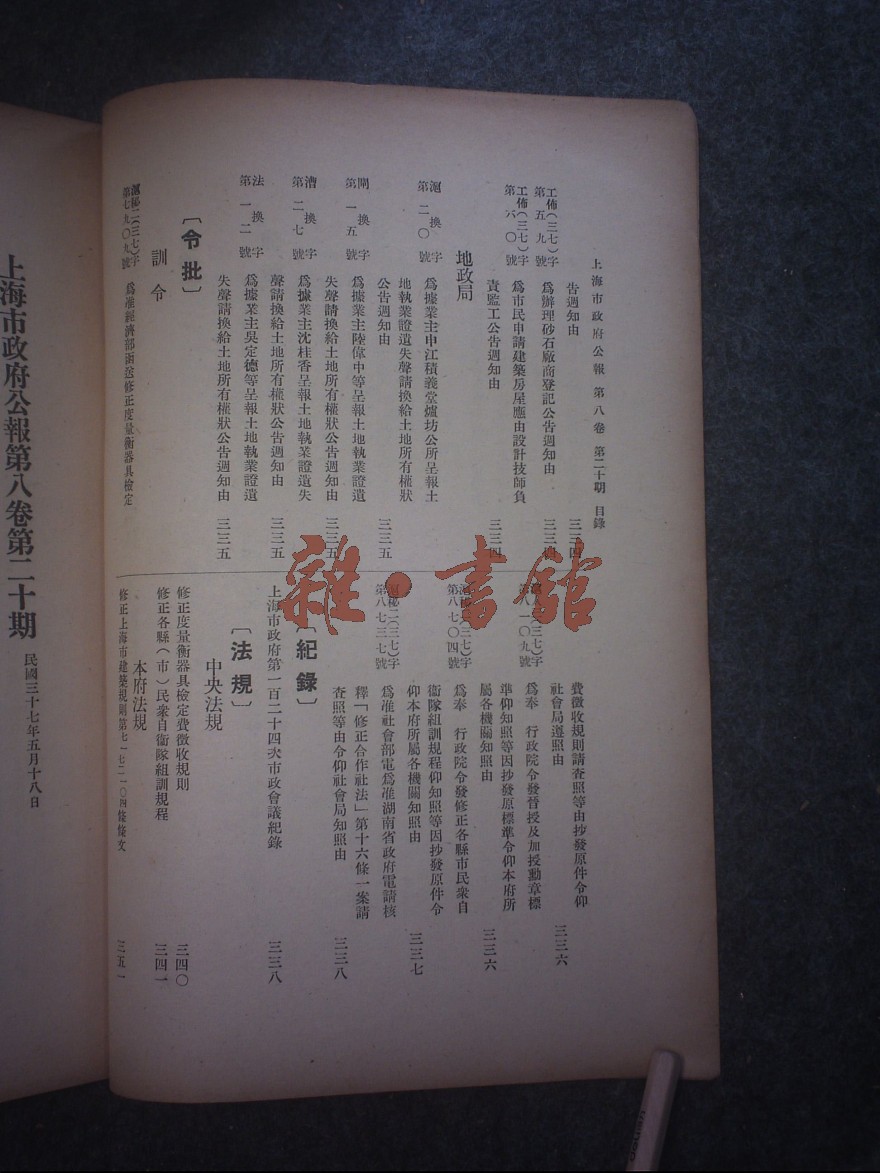 上海市政府公報 第八卷 第二十期 目錄
告週知由 三三四
工佈(三七)字第五九號 為辦理砂石廠商登記公告週知由 三三四
工佈(三七)字第六〇號 為市民申請建築房屋應由設計技師負
責監工公告週知由 三三四
地政局
滬換字第二〇號 為據業主申江積義堂爐坊公所呈報土
地執業證遺失聲請換給土地所有權狀
公告週知由 三三五
閘換字第一五號 為據業主陸偉中等呈報土地執業證遺
失聲請換給土地所有權狀公告週知由 三三五
漕換字第二七號 為據業主沈桂香呈報土地執業證遺失
聲請換給土地所有權狀公告週知由 三三五
法換字第一二號 為據業主吳定德等呈報土地執業證遺
失聲請換給土地所有權狀公告週知由 三三五
〔令批〕
訓令
滬秘二(三七)字第七九〇九號 為准經濟部函送修正度量衡器具檢定
費徵收規則請查照等由抄發原件令仰
社會局遵照由 三三六
(三七)字第八一〇九號 為奉 行政院令發晉授及加授勳章標
準仰知照等因抄發原標準令仰本府所
屬各機關知照由 三三六
滬秘二(三七)字第八七〇四號 為奉 行政院令發修正各縣市民衆自
衞隊組訓規程仰知照等因抄發原件令
仰本府所屬各機關知照由 三三七
滬秘二(三七)字第八七三七號 為准社會部電為准湖南省政府電請核
釋「修正合作社法」第十六條一案請
查照等由令仰社會局知照由 三三八
〔紀錄〕
上海市政府第一百二十四次市政會議紀錄 三三八
〔法規〕
中央法規
修正度量衡器具檢定費徵收規則 三四〇
修正各縣(市)民衆自衞隊組訓規程 三四一
本府法規
修正上海市建築規則第七一七二一〇四條條文 三五一
上海市政府公報第八卷第二十期 民國三十七年五月十八日
雜·書館